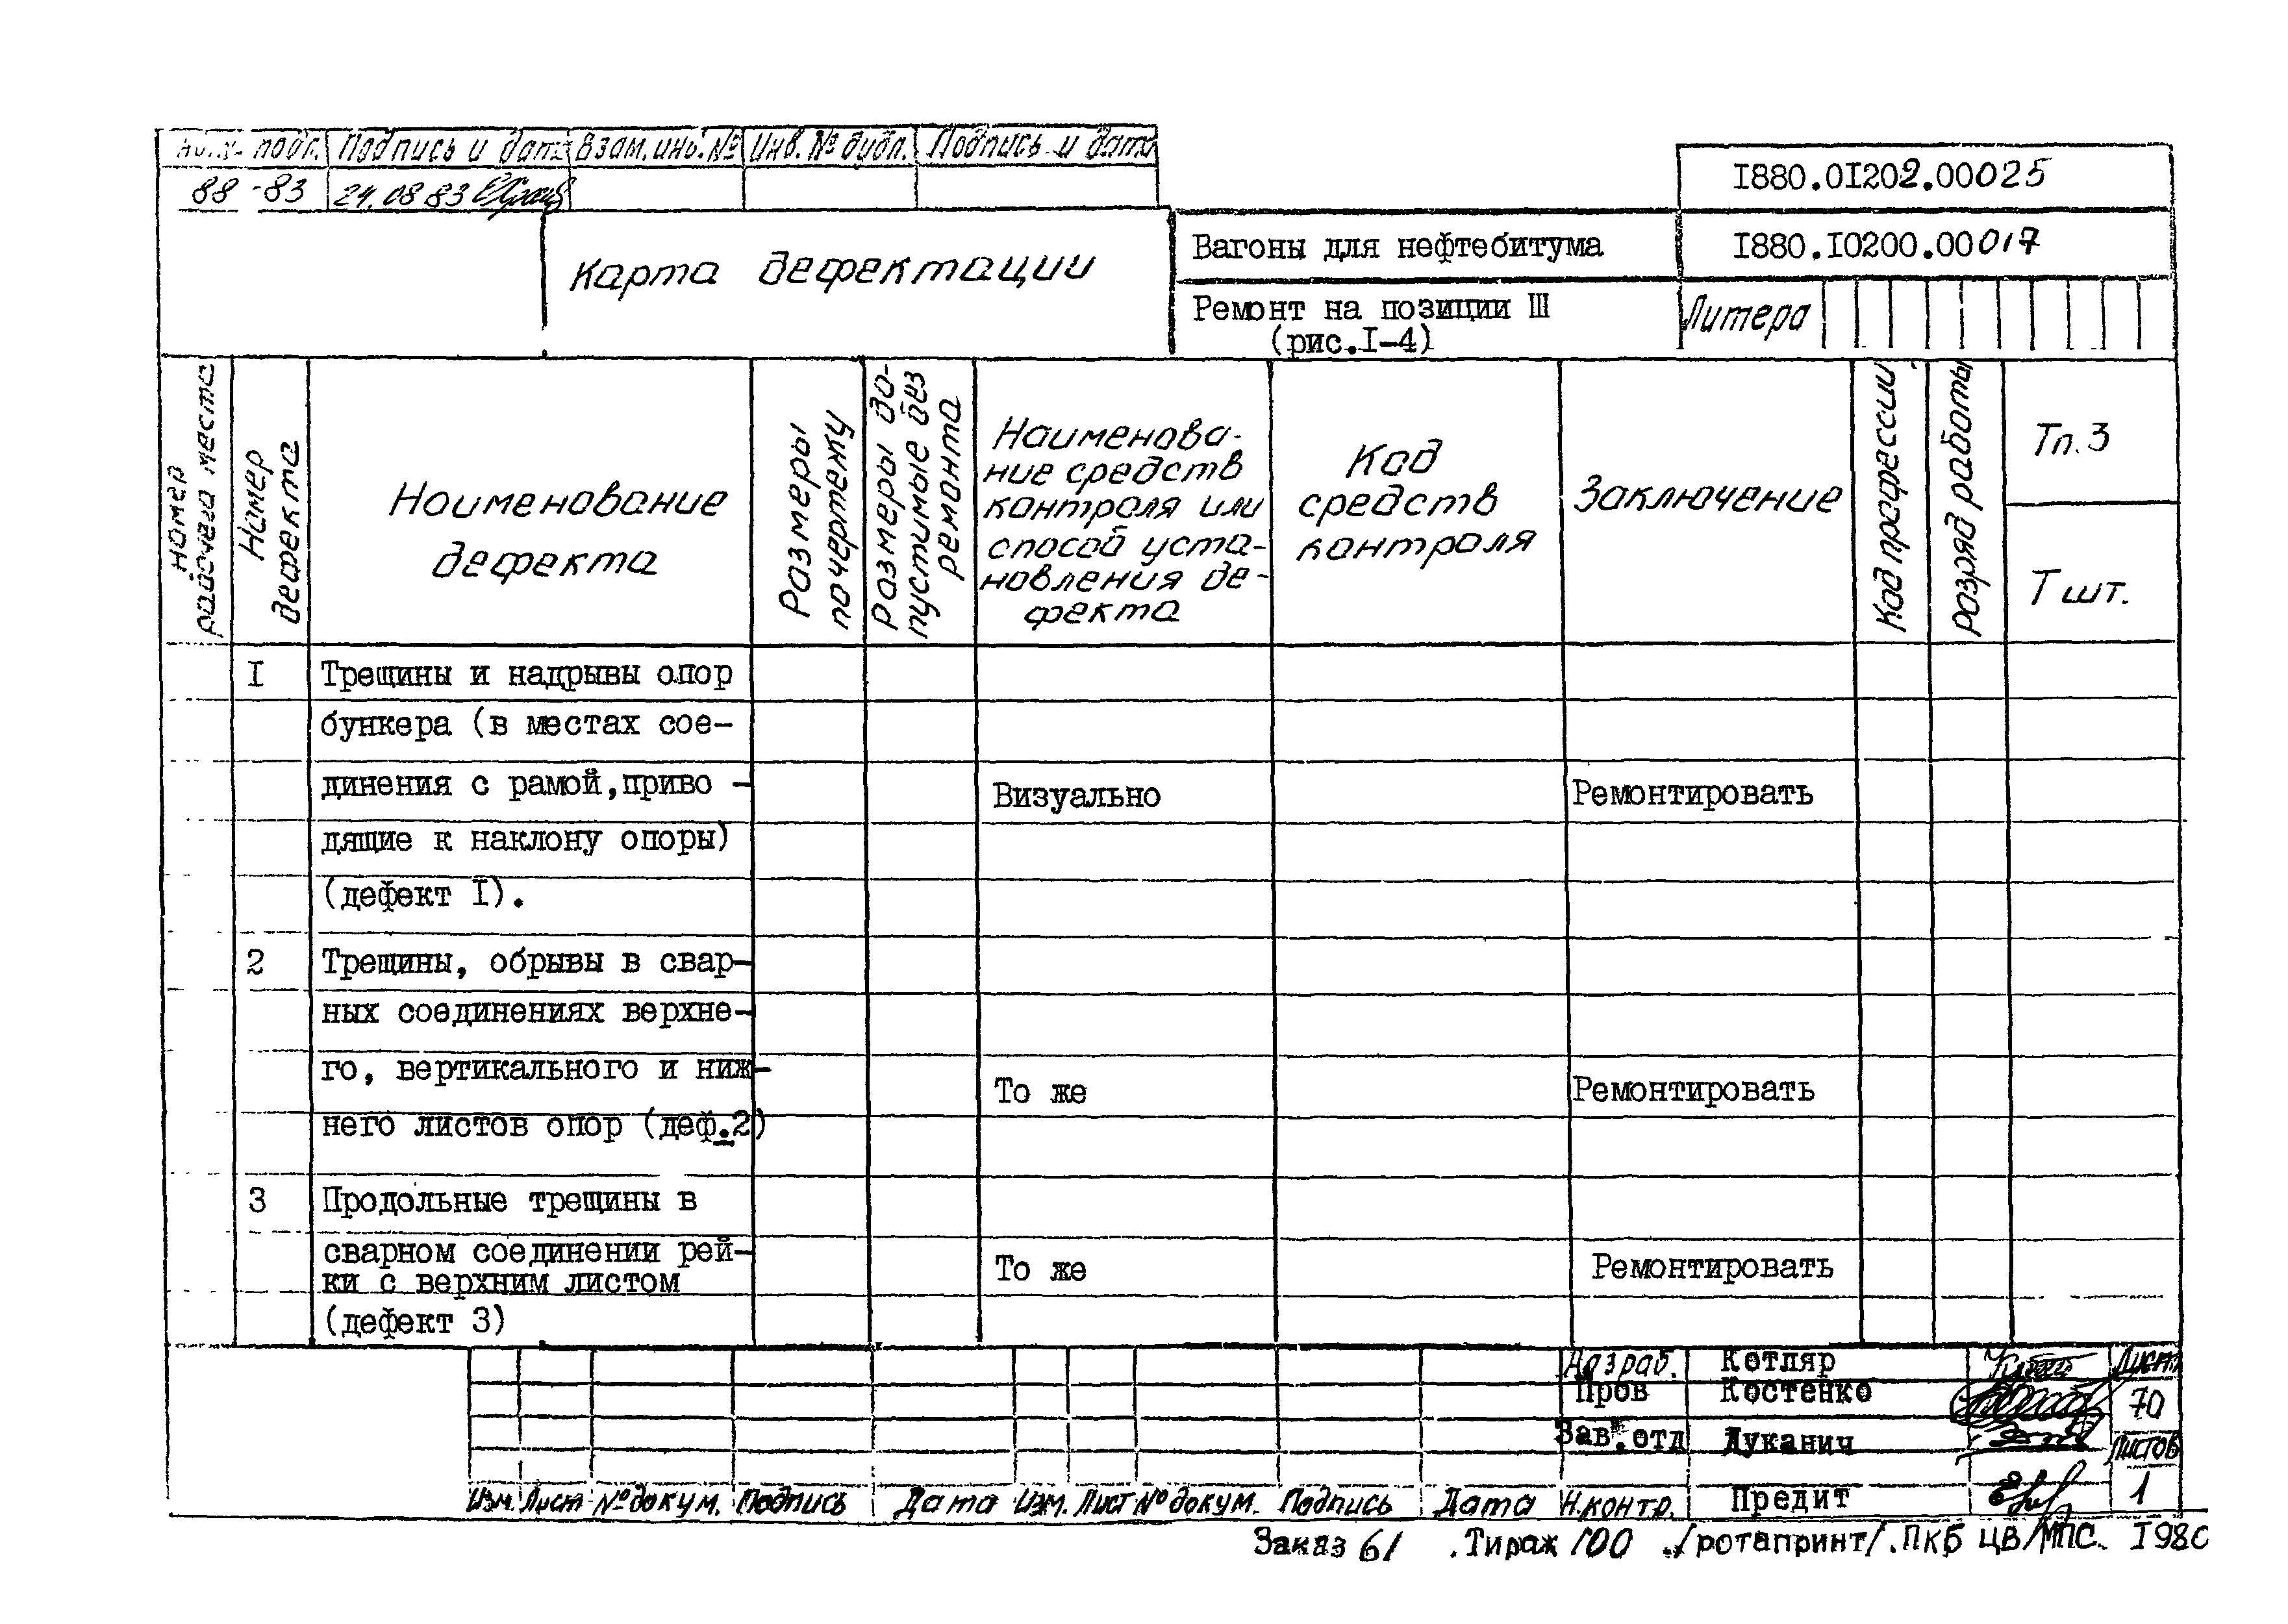 подл. Подпись и дата Взам. инв. № Инв. № дубл. Подпись и дата
88-83 24.08 83
I880.0I202.00025
Карта дефектации
Вагоны для нефтебитума
I880.I0200.00017
Ремонт на позиции Ш
(рис.I-4)
Литера
Номер
рабочего места
Номер
дефекта
Наименование
дефекта
Размеры
по чертежу
Размеры до-
пустимые без
ремонта
Наименова-
ние средств
контроля или
способ уста-
новления де-
фекта
Код
средств
контроля
Заключение
Код профессии
Разряд работы
Тп.3
Т шт.
I Трещины и надрывы опор
бункера (в местах сое-
динения с рамой,приво - Визуально Ремонтировать
дящие к наклону опоры)
(дефект I).
2 Трещины, обрывы в свар-
ных соединениях верхне-
го, вертикального и ниж- То же Ремонтировать
него листов опор (деф.2)
3 Продольные трещины в
сварном соединении рей- То же Ремонтировать
ки с верхним листом
(дефект 3)
Разраб. Котляр Лист
Пров Костенко 70
Зав.отд Луканич Листов
Изм. Лист № докум. Подпись Дата Изм. Лист № докум. Подпись Дата Н.контр. Предит 1
Заказ 61 .Тираж 100 ./ротапринт/.ПКБ ЦВ/МПС. I980